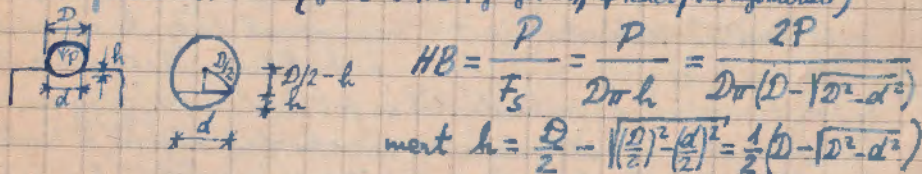 D
P
h
d
D/2
D/2 - h
h
d
HB = P/F_s = P/(Dπh) = 2P/(Dπ(D-√(D²-d²)))
mert h = D/2 - √((D/2)²-(d/2)²) = 1/2(D-√(D²-d²))